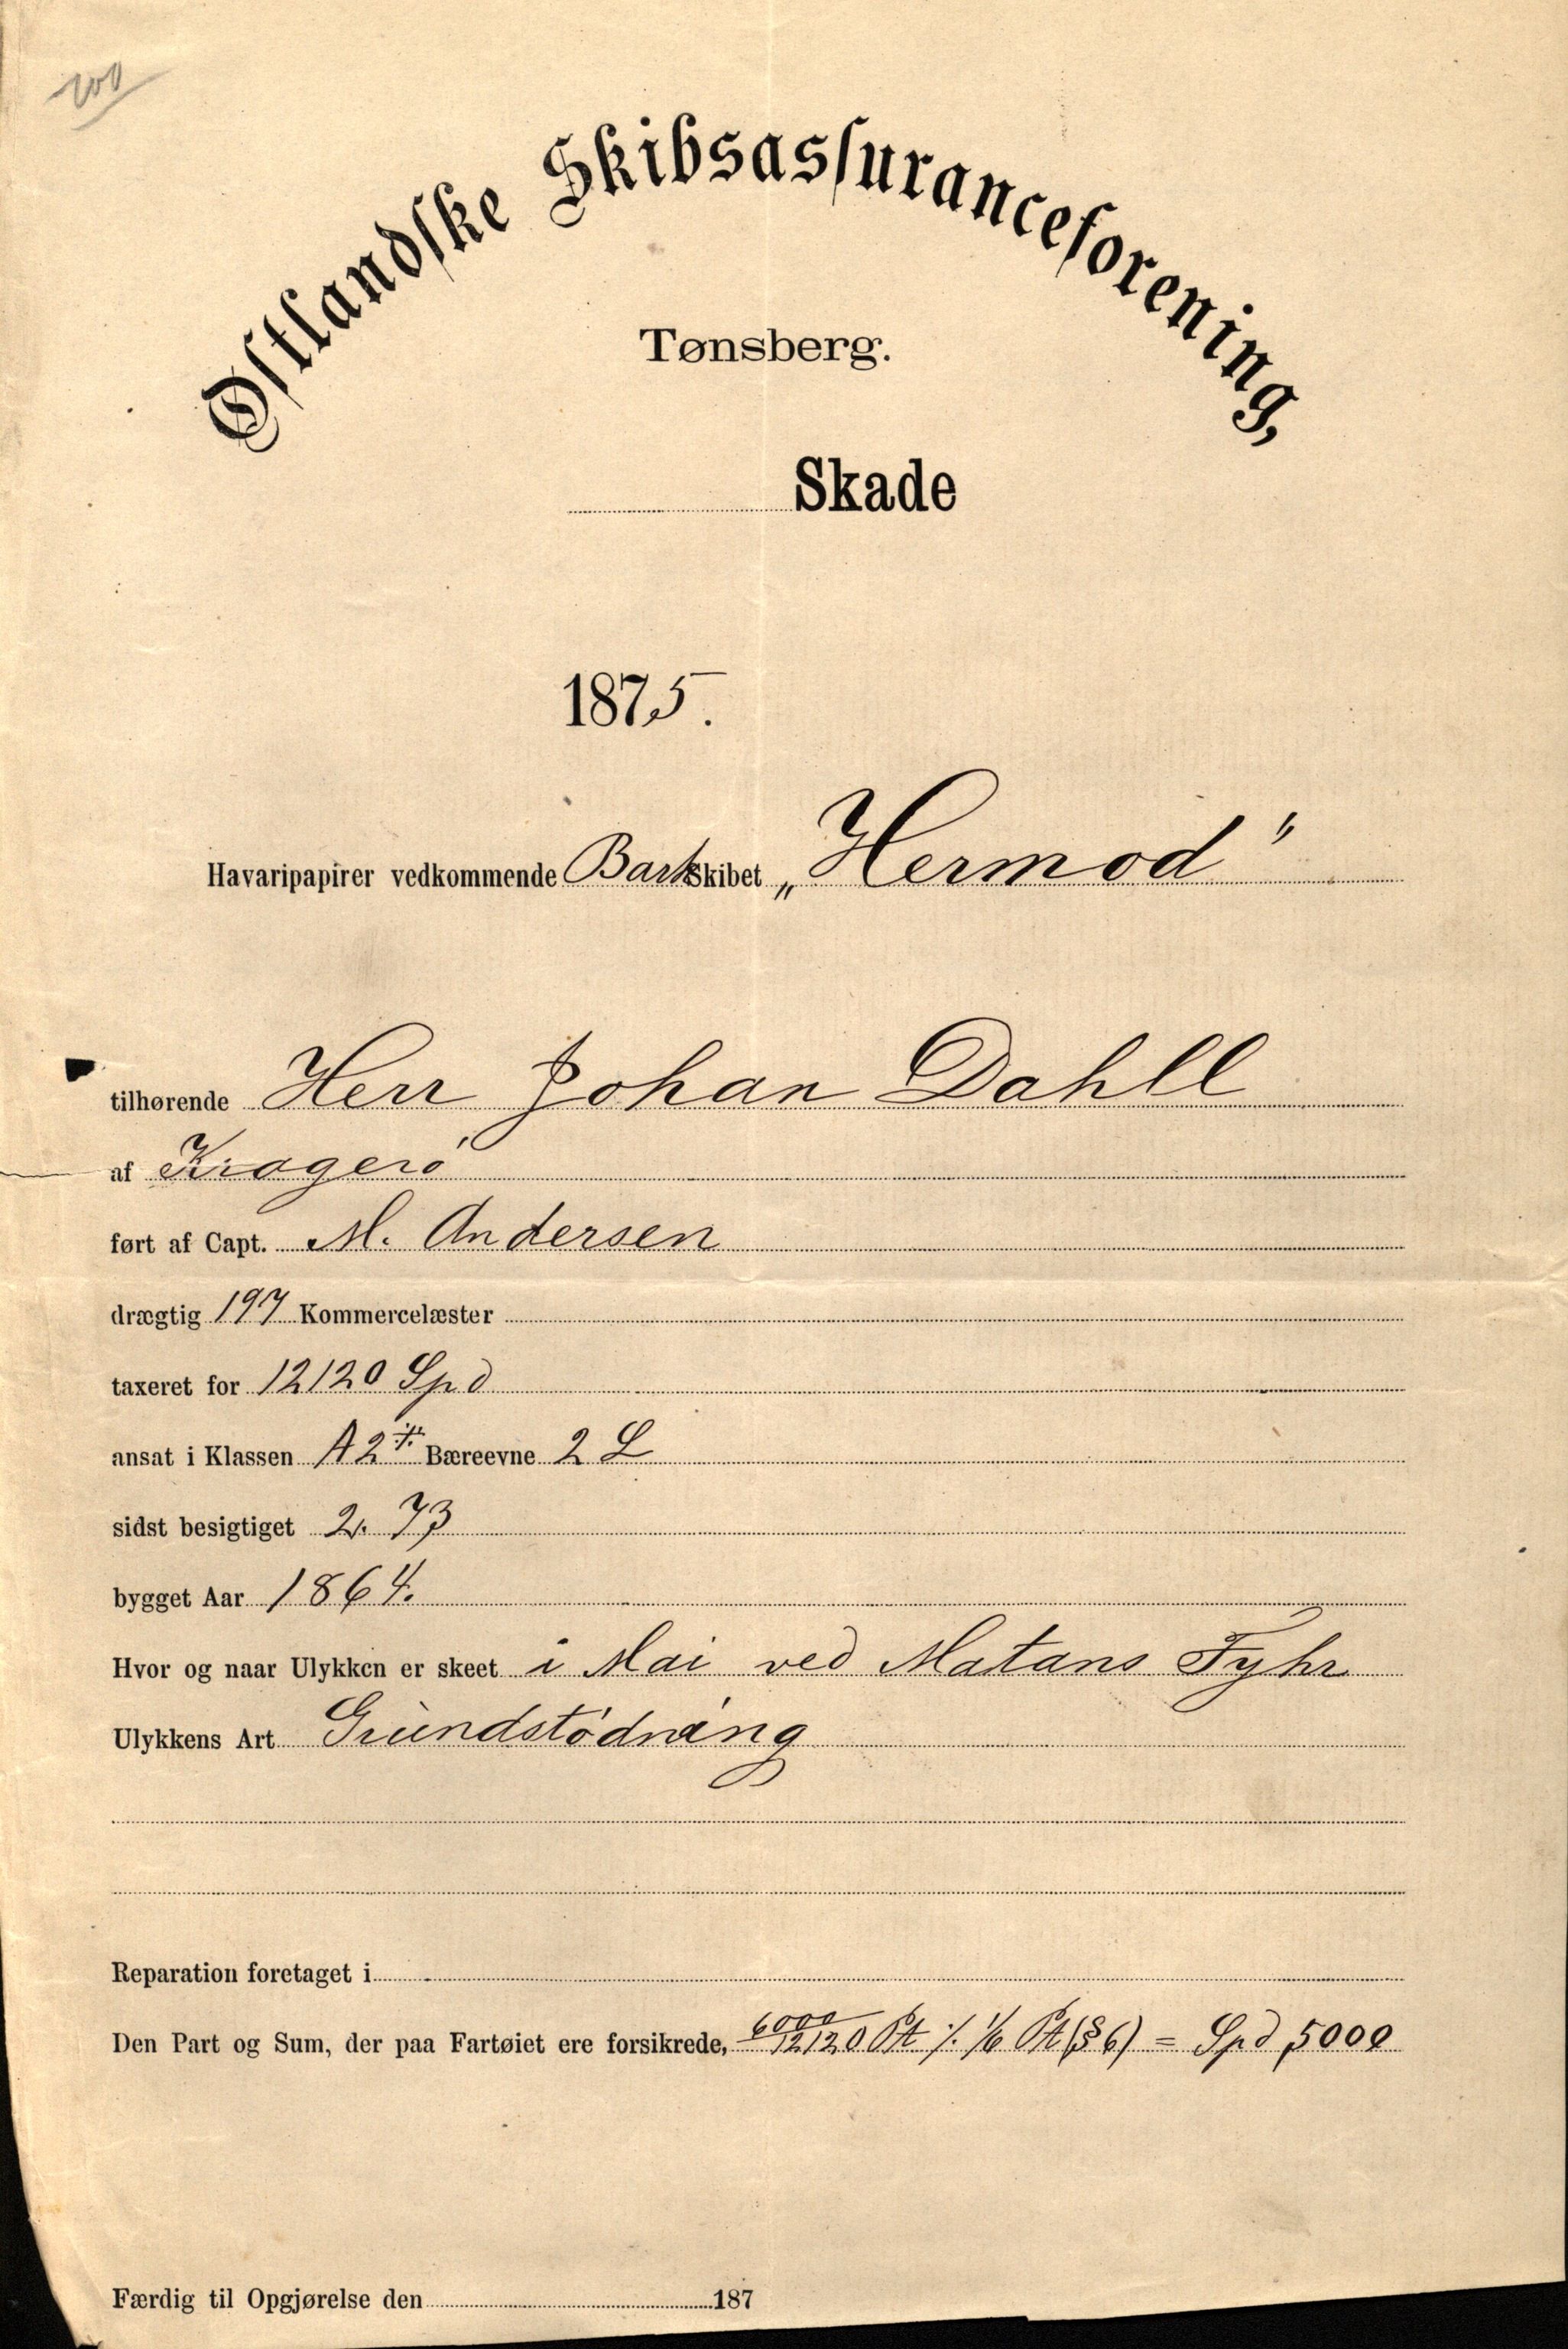 200
Østlandske Skibsassuranceforening,
Tønsberg.
Skade
1875.
Havaripapirer vedkommende Barkskibet „Hermod"
tilhørende Herr Johan Dahll
af Kragerö
ført af Capt. M. Andersen
drægtig 197 Kommercelæster
taxeret for 12120 Spd
ansat i Klassen A2 Bæreevne 2 L
sidst besigtiget 2. 73
bygget Aar 1864.
Hvor og naar Ulykken er skeet i Mai ved Matans Fyhr
Ulykkens Art Grundstödning
Reparation foretaget i
Den Part og Sum, der paa Fartøiet ere forsikrede, 6000/12120 Pt ⁒ 1/6 Pt (§ 6) = Spd 5000
Færdig til Opgjørelse den 187